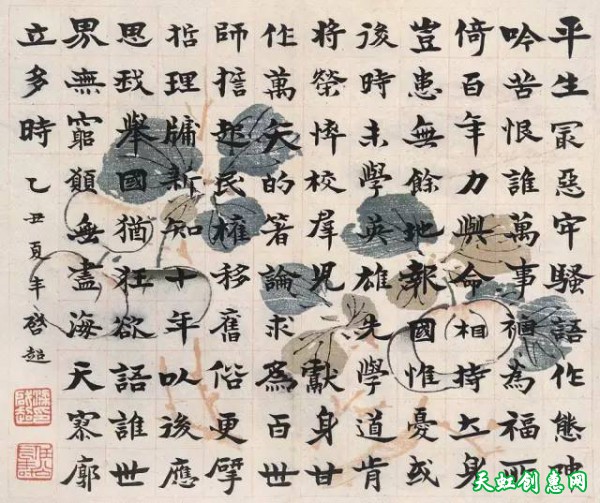 平生冣惡牢騷語作態呻
吟苦恨誰萬事禍為福所
倚百年力與命相持立身
豈患無餘地報國惟憂或
後時未學英雄先學道肯
將榮悴校羣兒獻身甘
作萬矢的箸論求爲百世
師誓起民權移舊俗更揅
哲理牖新知十年以後應
思我舉國猶狂欲語誰世
界無窮願無盡海天寥廓
立多時 乙丑夏半啓超
天虹创惠网